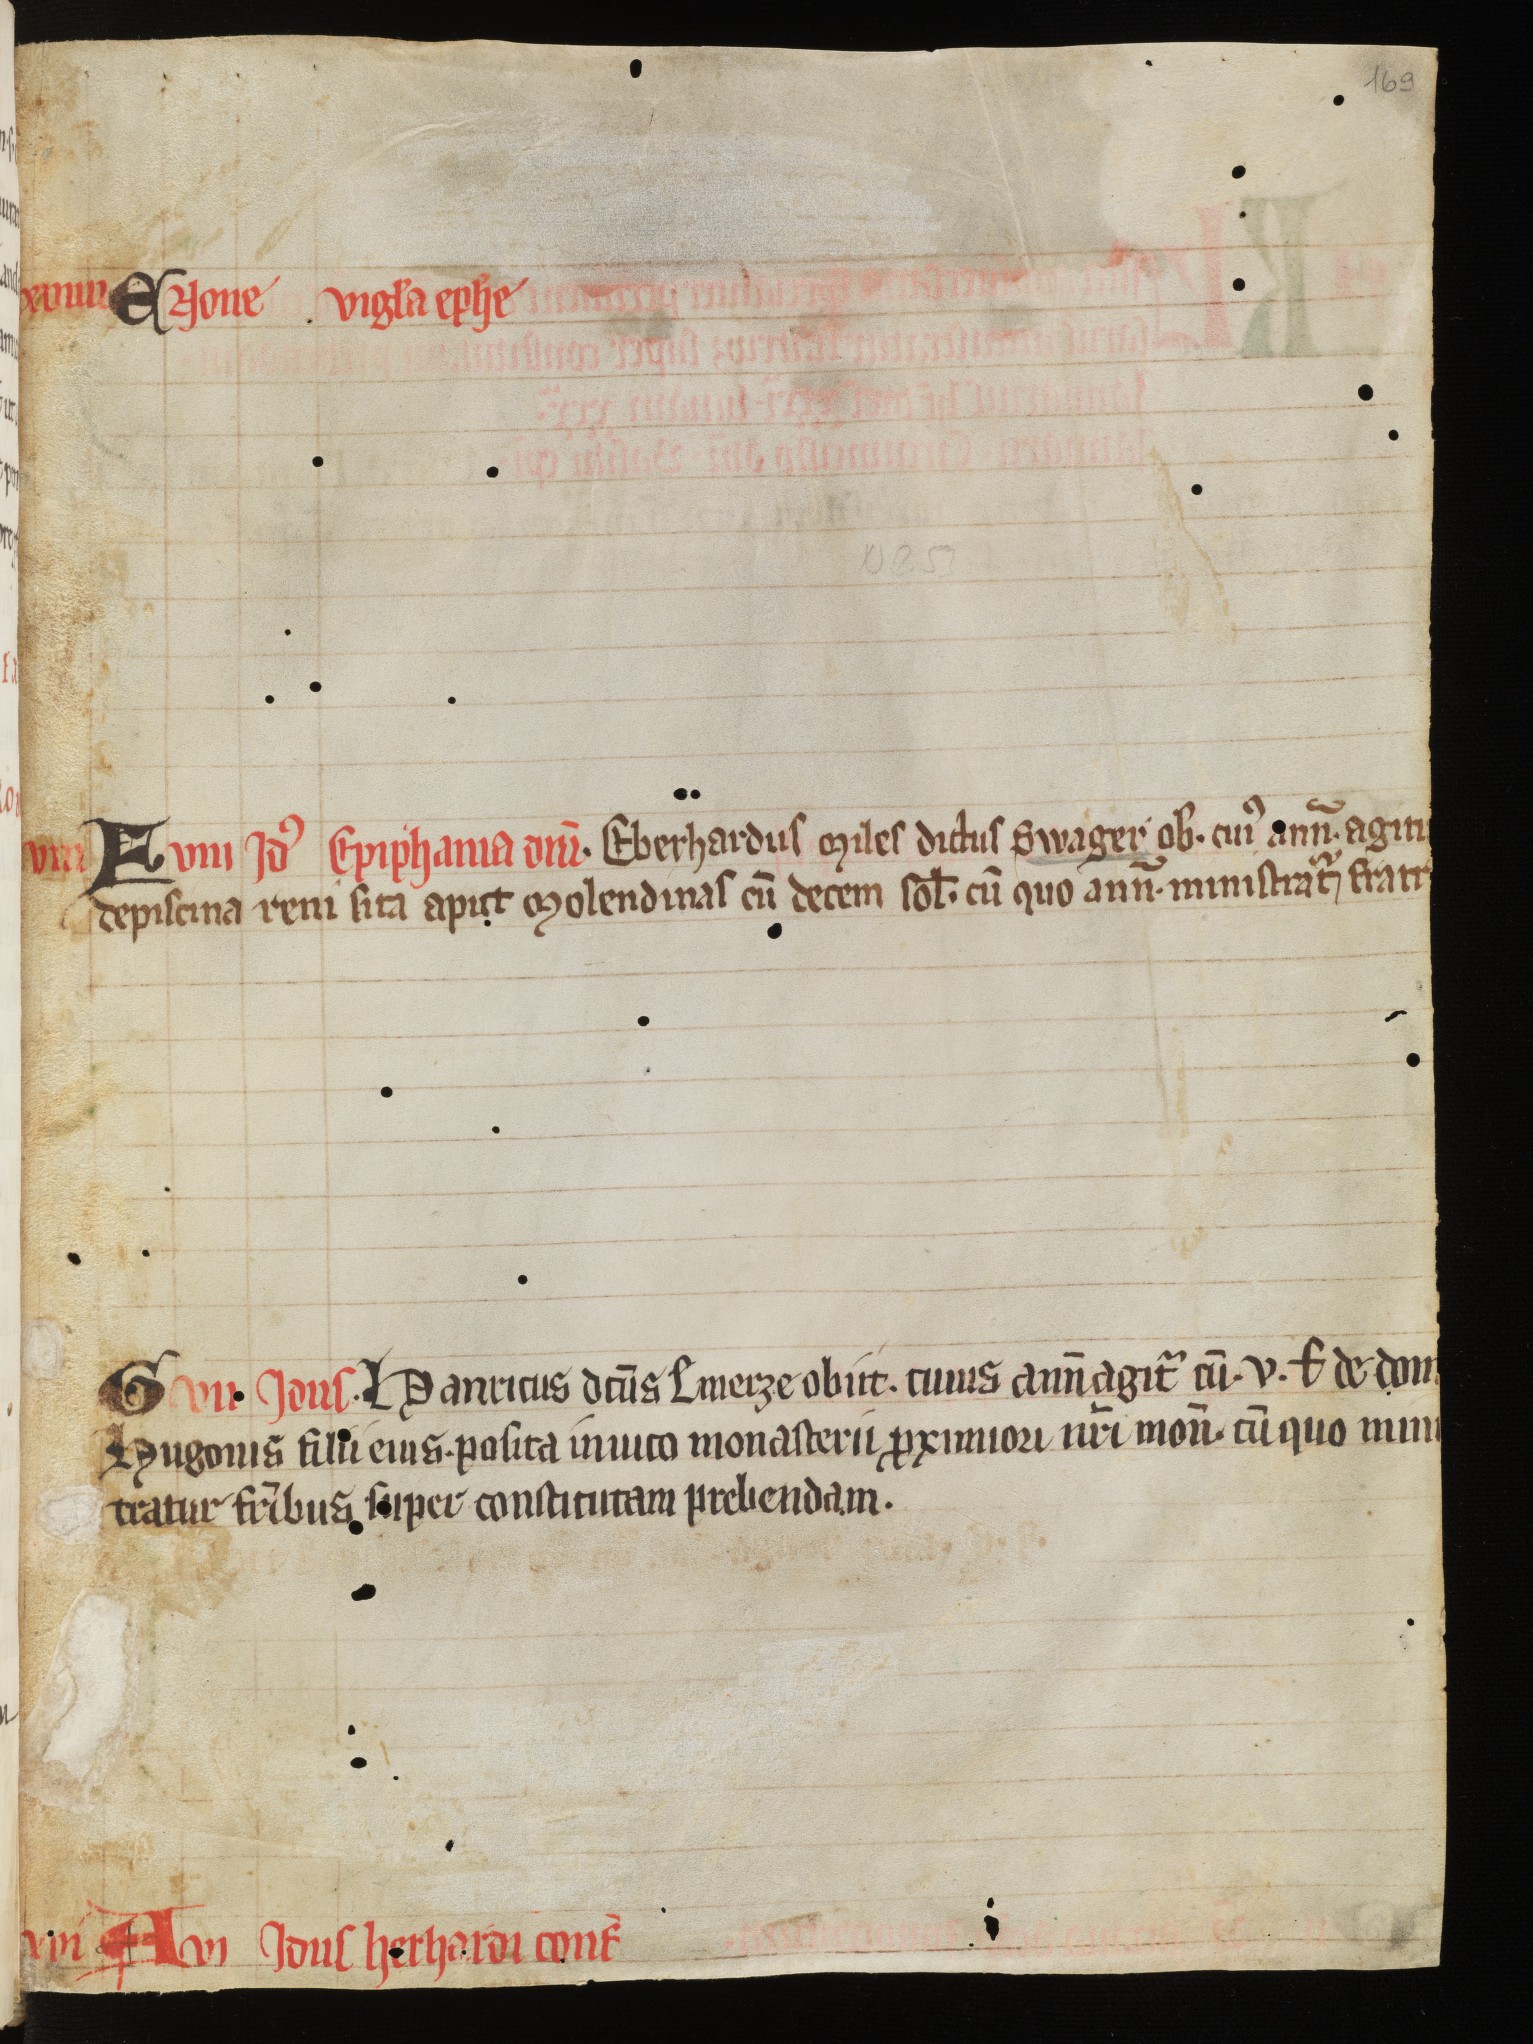 169
xviiii E None vigl̄a ephe
viii F viii Id⁹ Epiphania dn̄i. Eberhardus miles dictus Swager ob. cui⁹ ann̄. agitu
depiscina reni sita aput molendinas cū decem sol̄. cū quo ann̄. ministrat᷑ fratr
G vii Idus. Hanricus dc̄us Lmerze obiit. cuius ann̄ agit᷑ cū. v. ł de dom
Hugonis filii eius. posita in vico monasterii ꝓximiori nr̄i mon̄. cū quo minis
tratur fr̄ibus super constitutam prebendam.
xvi A vi Idus herhardi conf̄